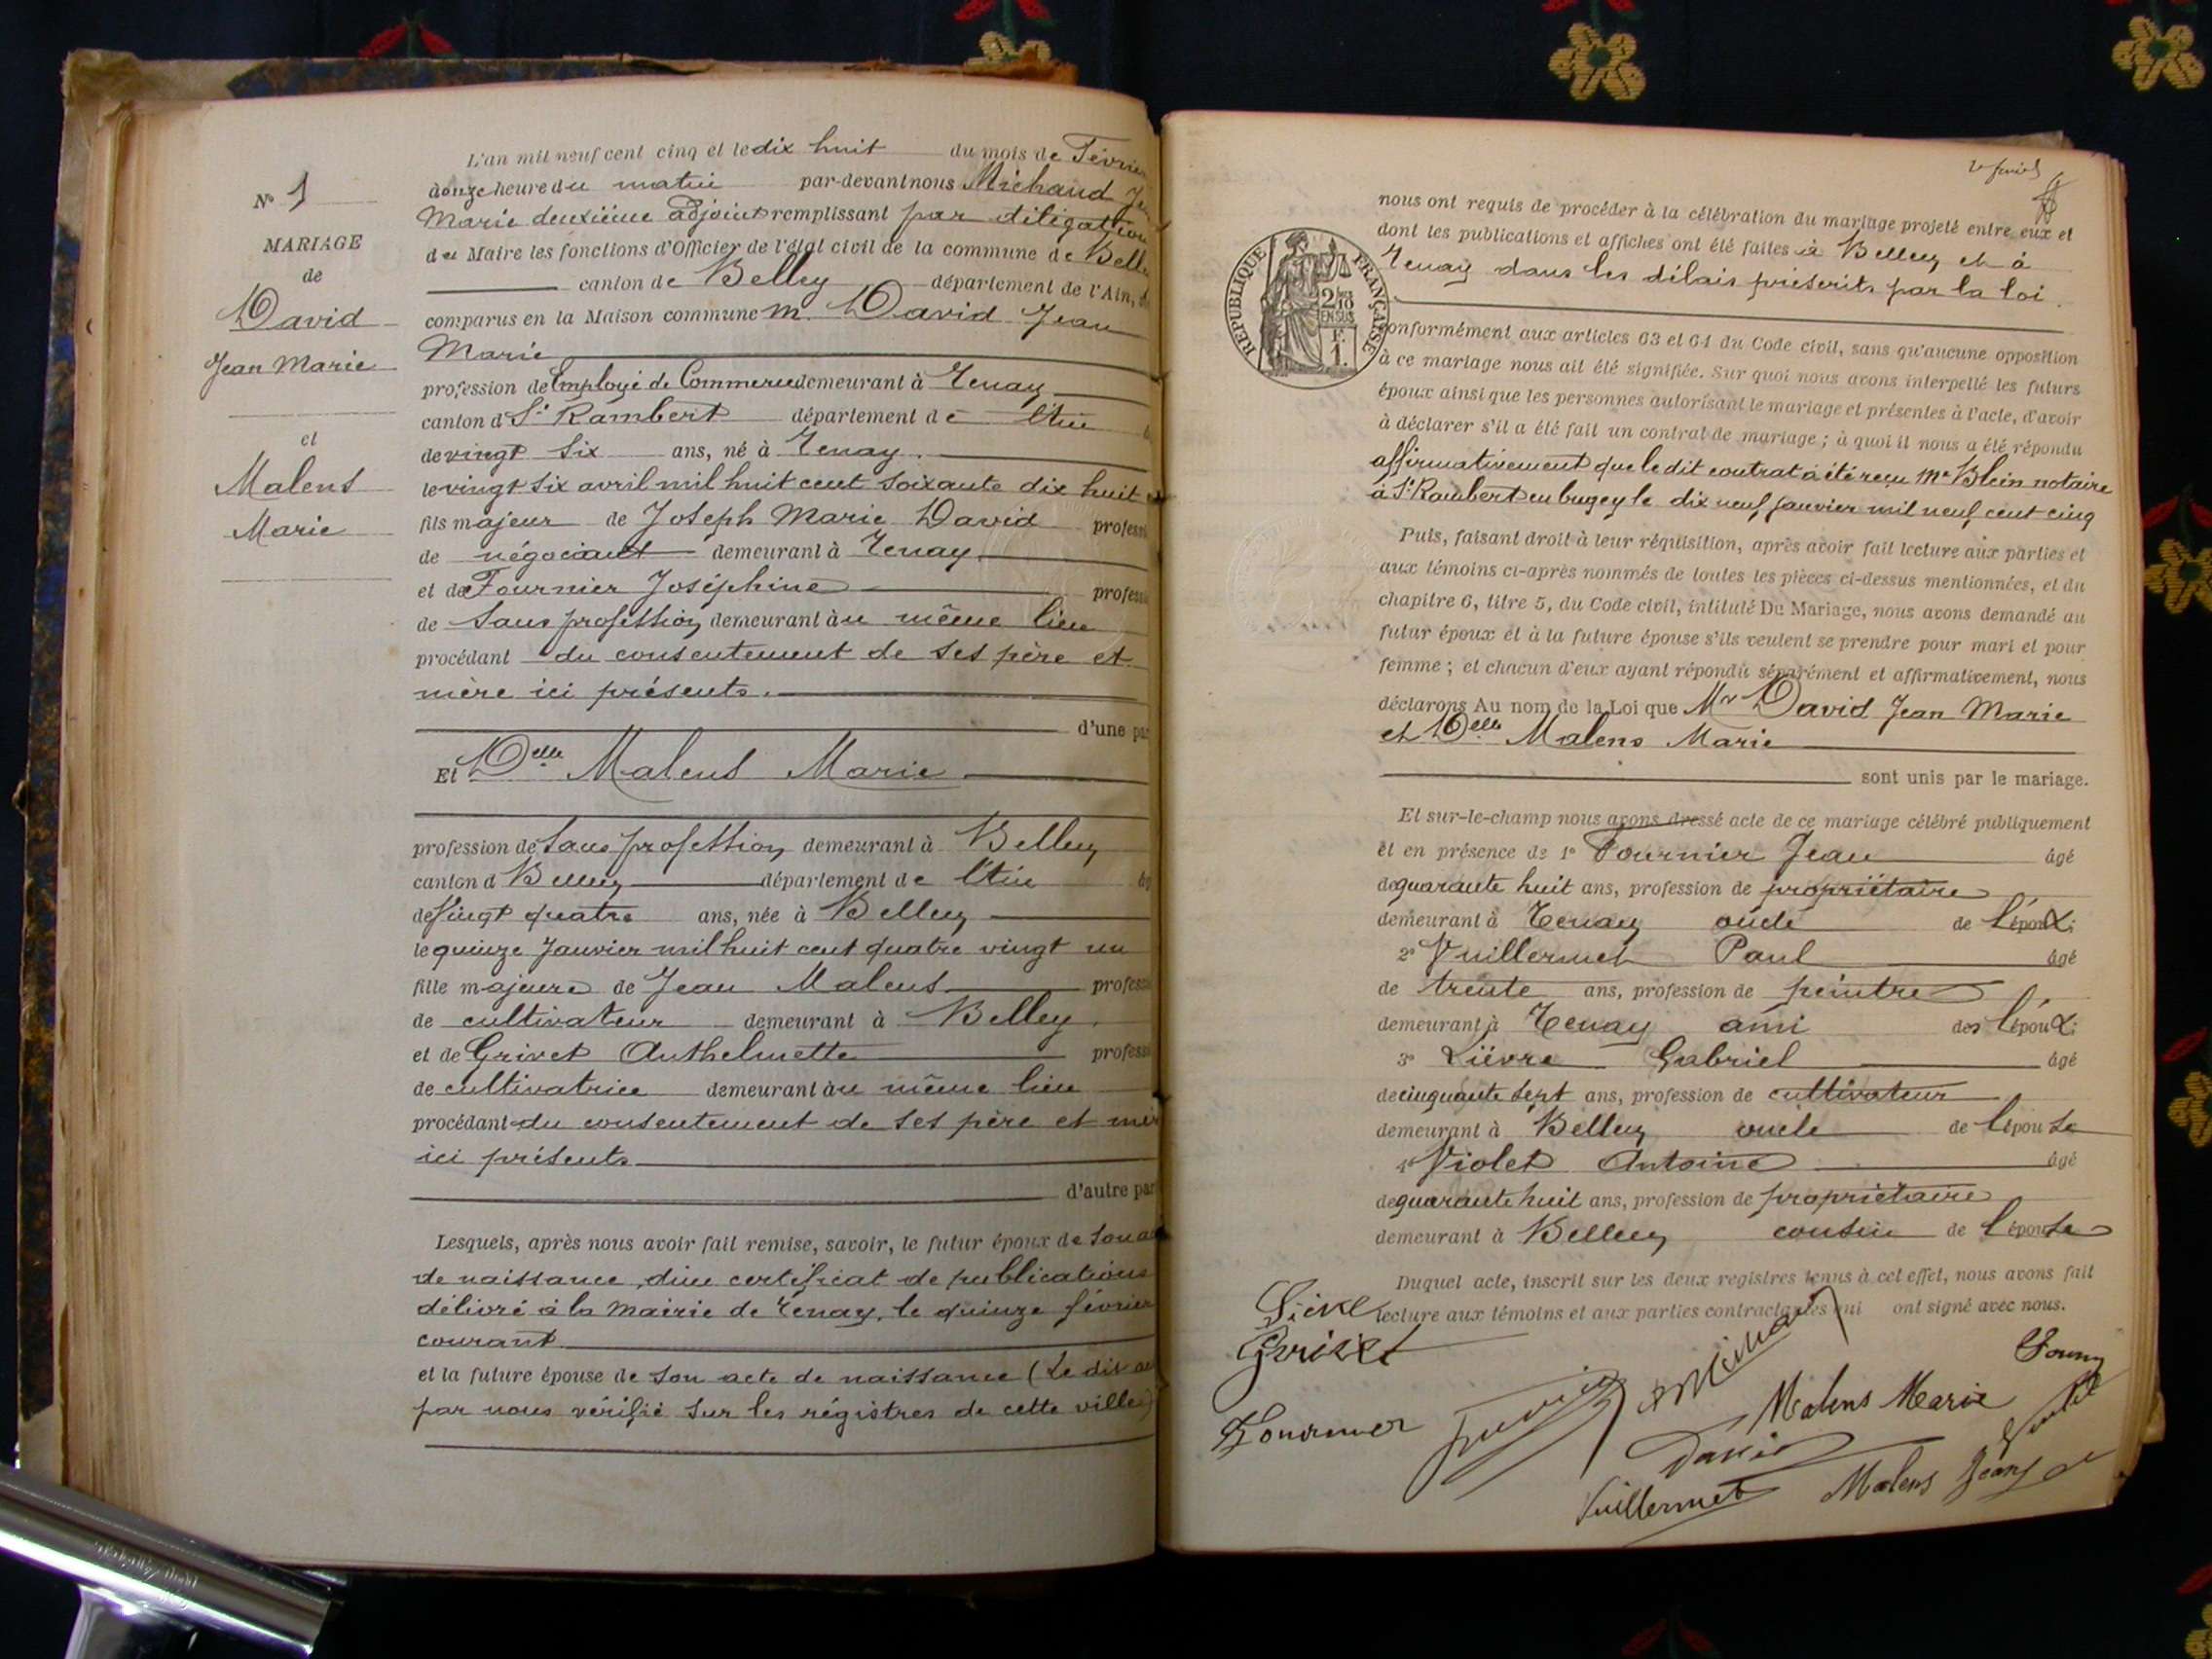 L'an mil neuf cent cinq et le dix huit du mois de Février
à onze heure du matin par-devant nous Michaud
Marie deuxième adjoint remplissant par délégation
du Maire les fonctions d'Officier de l'état civil de la commune de Belley
canton de Belley département de l'Ain,
comparus en la Maison commune M. David Jean
Marie
profession de Employé de Commerce demeurant à Tenay
canton d St Rambert département de l'Ain
de vingt six ans, né à Tenay.
le vingt six avril mil huit cent soixante dix huit
fils majeur de Joseph Marie David profession
de négociant demeurant à Tenay.
et de Fournier Joséphine profession
de sans profession demeurant au même lieu
procédant du consentement de ses père et
mère ici présents.
d'une part
Et Delle Malens Marie
profession de sans profession demeurant à Belley
canton d Belley département de l'Ain
de vingt quatre ans, née à Belley
le quinze Janvier mil huit cent quatre vingt un
fille majeure de Jean Malens profession
de cultivateur demeurant à Belley.
et de Grivet Anthelmette profession
de cultivatrice demeurant au même lieu
procédant du consentement de ses père et mère
ici présents
d'autre part
Lesquels, après nous avoir fait remise, savoir, le futur époux de son
de naissance, d'un certificat de publications
délivré à la mairie de Tenay, le quinze février
courant
et la future épouse de son acte de naissance (Le dit
par nous vérifié sur les régistres de cette ville)
No 1
MARIAGE
de
David
Jean Marie
et
Malens
Marie
nous ont requis de procéder à la célébration du mariage projeté entre eux et
dont les publications et affiches ont été faites à Belley et à
Tenay dans les délais préscrits par la loi.
conformément aux articles 63 et 64 du Code civil, sans qu'aucune opposition
à ce mariage nous ait été signifiée. Sur quoi nous avons interpellé les futurs
époux ainsi que les personnes autorisant le mariage et présentes à l'acte, d'avoir
à déclarer s'il a été fait un contrat de mariage ; à quoi il nous a été répondu
affirmativement que le dit contrat a été reçu Me Blein notaire
à St Rambert en bugey le dix neuf janvier mil neuf cent cinq
Puis, faisant droit à leur réquisition, après avoir fait lecture aux parties et
aux témoins ci-après nommés de toutes les pièces ci-dessus mentionnées, et du
chapitre 6, titre 5, du Code civil, intitulé Du Mariage, nous avons demandé au
futur époux et à la future épouse s'ils veulent se prendre pour mari et pour
femme ; et chacun d'eux ayant répondu séparément et affirmativement, nous
déclarons Au nom de la Loi que Mr David Jean Marie
et Delle Malens Marie
sont unis par le mariage.
Et sur-le-champ nous avons dressé acte de ce mariage célébré publiquement
et en présence de 1° Fournier Jean âgé
de quarante huit ans, profession de propriétaire
demeurant à Tenay oncle de l'époux;
2° Vuillermet Paul âgé
de trente ans, profession de peintre
demeurant à Tenay ami de l'époux;
3° Lièvre Gabriel âgé
de cinquante sept ans, profession de cultivateur
demeurant à Belley oncle de l'épouse
4° Violet Antoine âgé
de quarante huit ans, profession de propriétaire
demeurant à Belley cousin de l'épouse
Duquel acte, inscrit sur les deux registres tenus à cet effet, nous avons fait
lecture aux témoins et aux parties contractantes qui ont signé avec nous.
RÉPUBLIQUE FRANÇAISE
2/10
EN SUS
1 F.
Lièvre
Grivet
Fournier
Malens Marie
David
Vuillermet
Malens Jean